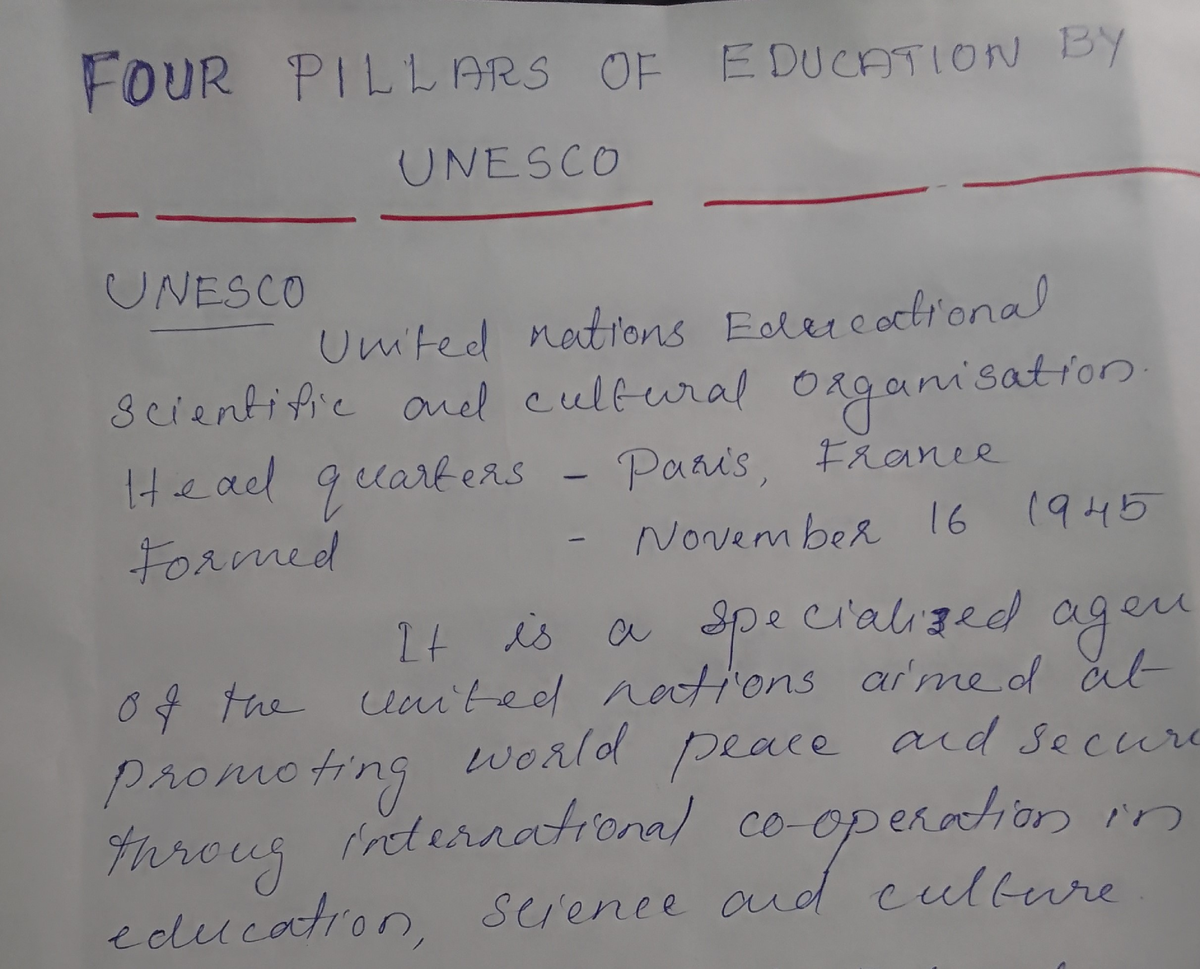 FOUR PILLARS OF EDUCATION BY
UNESCO
UNESCO
United nations Educational
Scientific and cultural Organisation.
Head quarters - Paris, France
Formed - November 16 1945
It is a specialized agen
of the united nations aimed at
promoting world peace and secur
throug international co-operation in
education, science and culture.